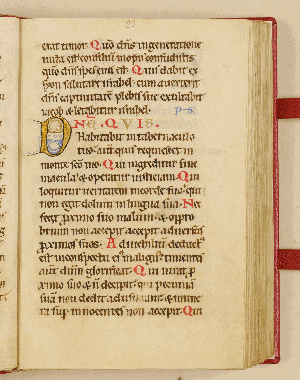 erat timor. Quo dñs in generatione
iusta est consiliũ inopis confudistis
qm̃ dñs spes eius est. Quis dabit ex
syon salutare israhel cum averterit
dñs captivitatẽ plebis sue exultabit
iacob & letabitur israhel.
DNE. QVIS
habitabit in tabernaculo
tuo aut quis requiescet in
monte sc̃o tuo. Qui ingreditur sine
macula & operatur iusticiam. Qui
loquitur veritatem in corde suo qui
non egit dolum in lingua sua. Nec
fecit proximo suo malum & oppro
brium non accepit adversus
proximos suos. Ad nichilũ deduct
est in conspectu ei malign timentes
aut dñm glorificat. Qui iurat p
ximo suo & ñ decipit qui pecuniã
suã non dedit ad usurã & mune
ra sup innocentes non accepit. Qui